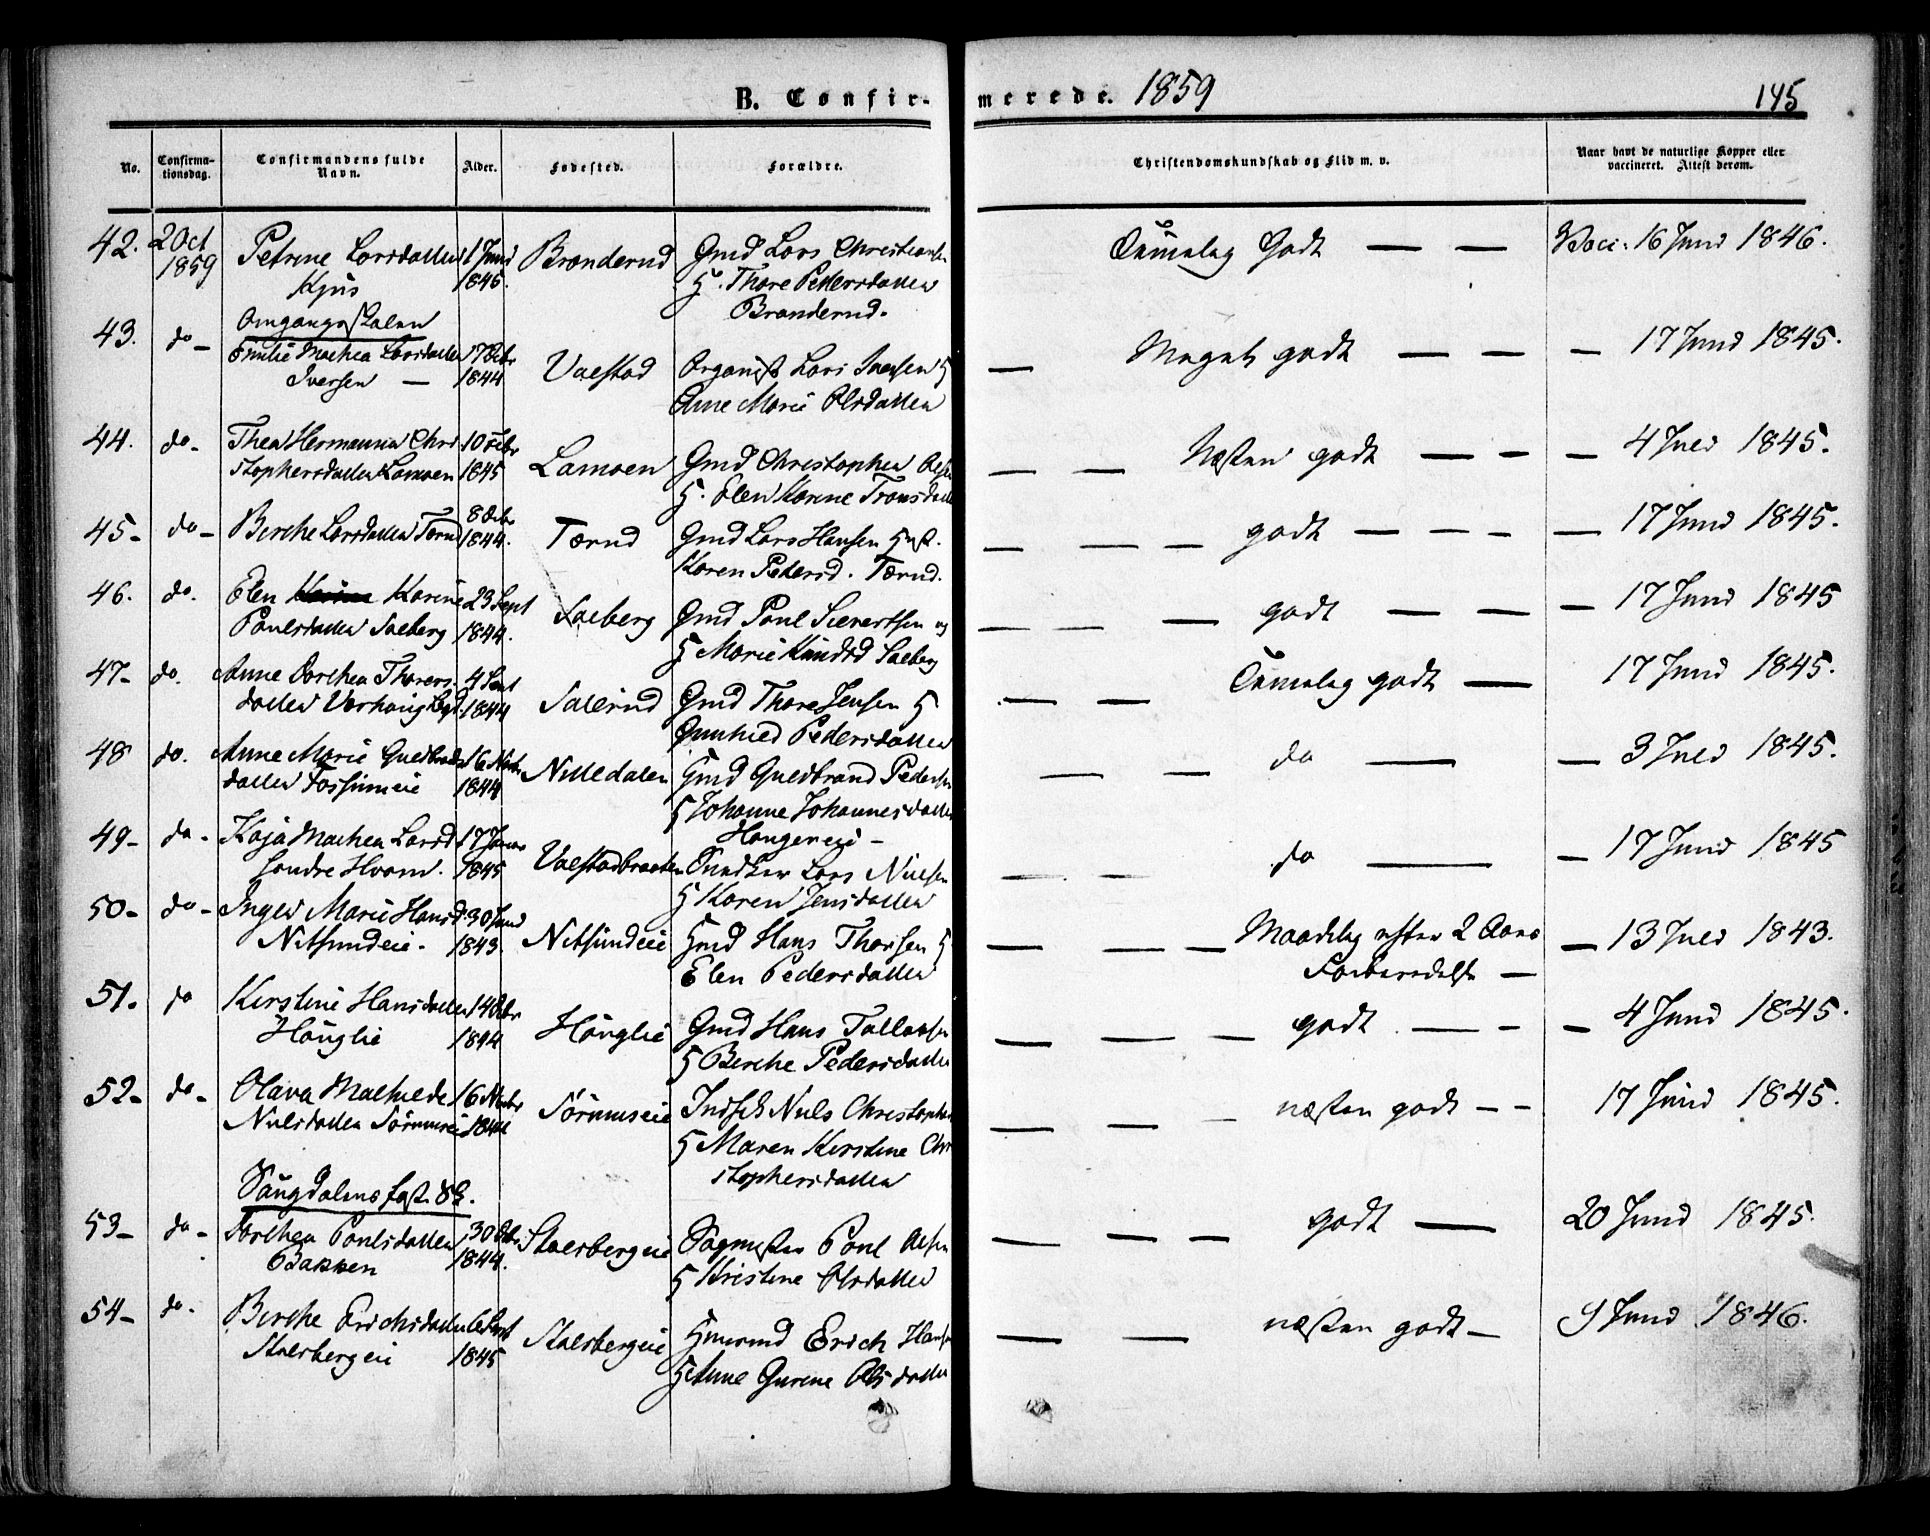 B. Confir-
merede. 1859
145
No.
Confirma-
tionsdag.
Confirmandens fulde
Navn.
Alder.
Fødested.
Forældre.
Christendomskundskab og Flid m. v.
Naar havt de naturlige Kopper eller
vaccineret. Attest derom.
42. 2 Oct 1859
Petrine Larsdatter
Kjus
1 Juni
1845.
Branderud
Gmd Lars Christiansen
H. Thore Pedersdatter
Branderud.
Temelig Godt
Vacc. 16 Juni 1846.
Omgangsskolen
43. do -
Emilie Mathea Larsdatter
Iversen
17 Octbr
1844
Valstad
Organist Lars Iversen H
Anne Marie Olsdatter
Meget godt
17 Juni 1845.
44. do -
Thea Hermanna Chri
stophersdatter Lamoen
1845
Lamoen
Gmd Christopher Olsen
H. Elen Karine Tronsdatter
Næsten godt
4 Juli 1845.
45 - do -
Berthe Larsdatter Tærud
1844.
Tærud
Gmd Lars Hansen Hust.
Karen Pedersd. Tærud.
godt
17 Juni 1845.
46. do.
Elen Karine
Paulsdatter Salberg
23 Sept
1844.
Salberg
Gmd Paul Sievertsen og
H Marie Knudsd Salberg
godt
17 Juni 1845
47 - do.
Anne Dorthea Thorers-
datter Vorhaug
4 Sept
1844
Salerud
Gmd Thore Jensen H
Gunhild Pedersdatter
Temelig godt
17 Juni 1845.
48 do.
Anne Marie Guldbrands
datter Fossumeie
16 Novbr
1844
Nittedalen
Gmd Guldbrand Pedersen
H Johanne Johannesdatter
Haugereie -
do
3 Juli 1845.
49 - do -
Kaja Mathea Larsd
Søndre Hvam.
17 Januar
1845
Valstadbraaten
Lars Nielsen
H Karen Jensdatter
do
17 Juni 1845
50 - do -
Inger Marie Hansd.
Nitsundeie.
30 Juni
1843.
Nitsundeie
Gmd Hans Thorsen H
Elen Pedersdatter
Maadelig efter 2 Aars
Forberedelse
13 Juli 1843.
51. do
Kirstine Hansdatter
Hauglie
14 Octbr
1844
Hauglie
Gmd Hans Tollevsen
H Berthe Pedersdatter
godt
4 Juni 1845.
52 - do -
Olava Mathilde
Nielsdatter Sørumseie
16 Novbr
1844
Sørumseie
Inds Niels Christophersen
H Maren Kirstine Chri
stophersdatter
næsten godt
17 Juni 1845.
53 - do -
Dorthea Paulsdatter
Bakken
30 Octbr
1844.
Stalsbergeie
Sagmester Paul Olsen
H Kristine Olsdatter
godt
20 Juni 1845.
54 - do.
Berthe Erichsdatter
Stalsbergeie
1845
Stalsbergeie
Erich Hansen
H Anne Gurine Olsdatter
næsten godt
9 Juni 1846.